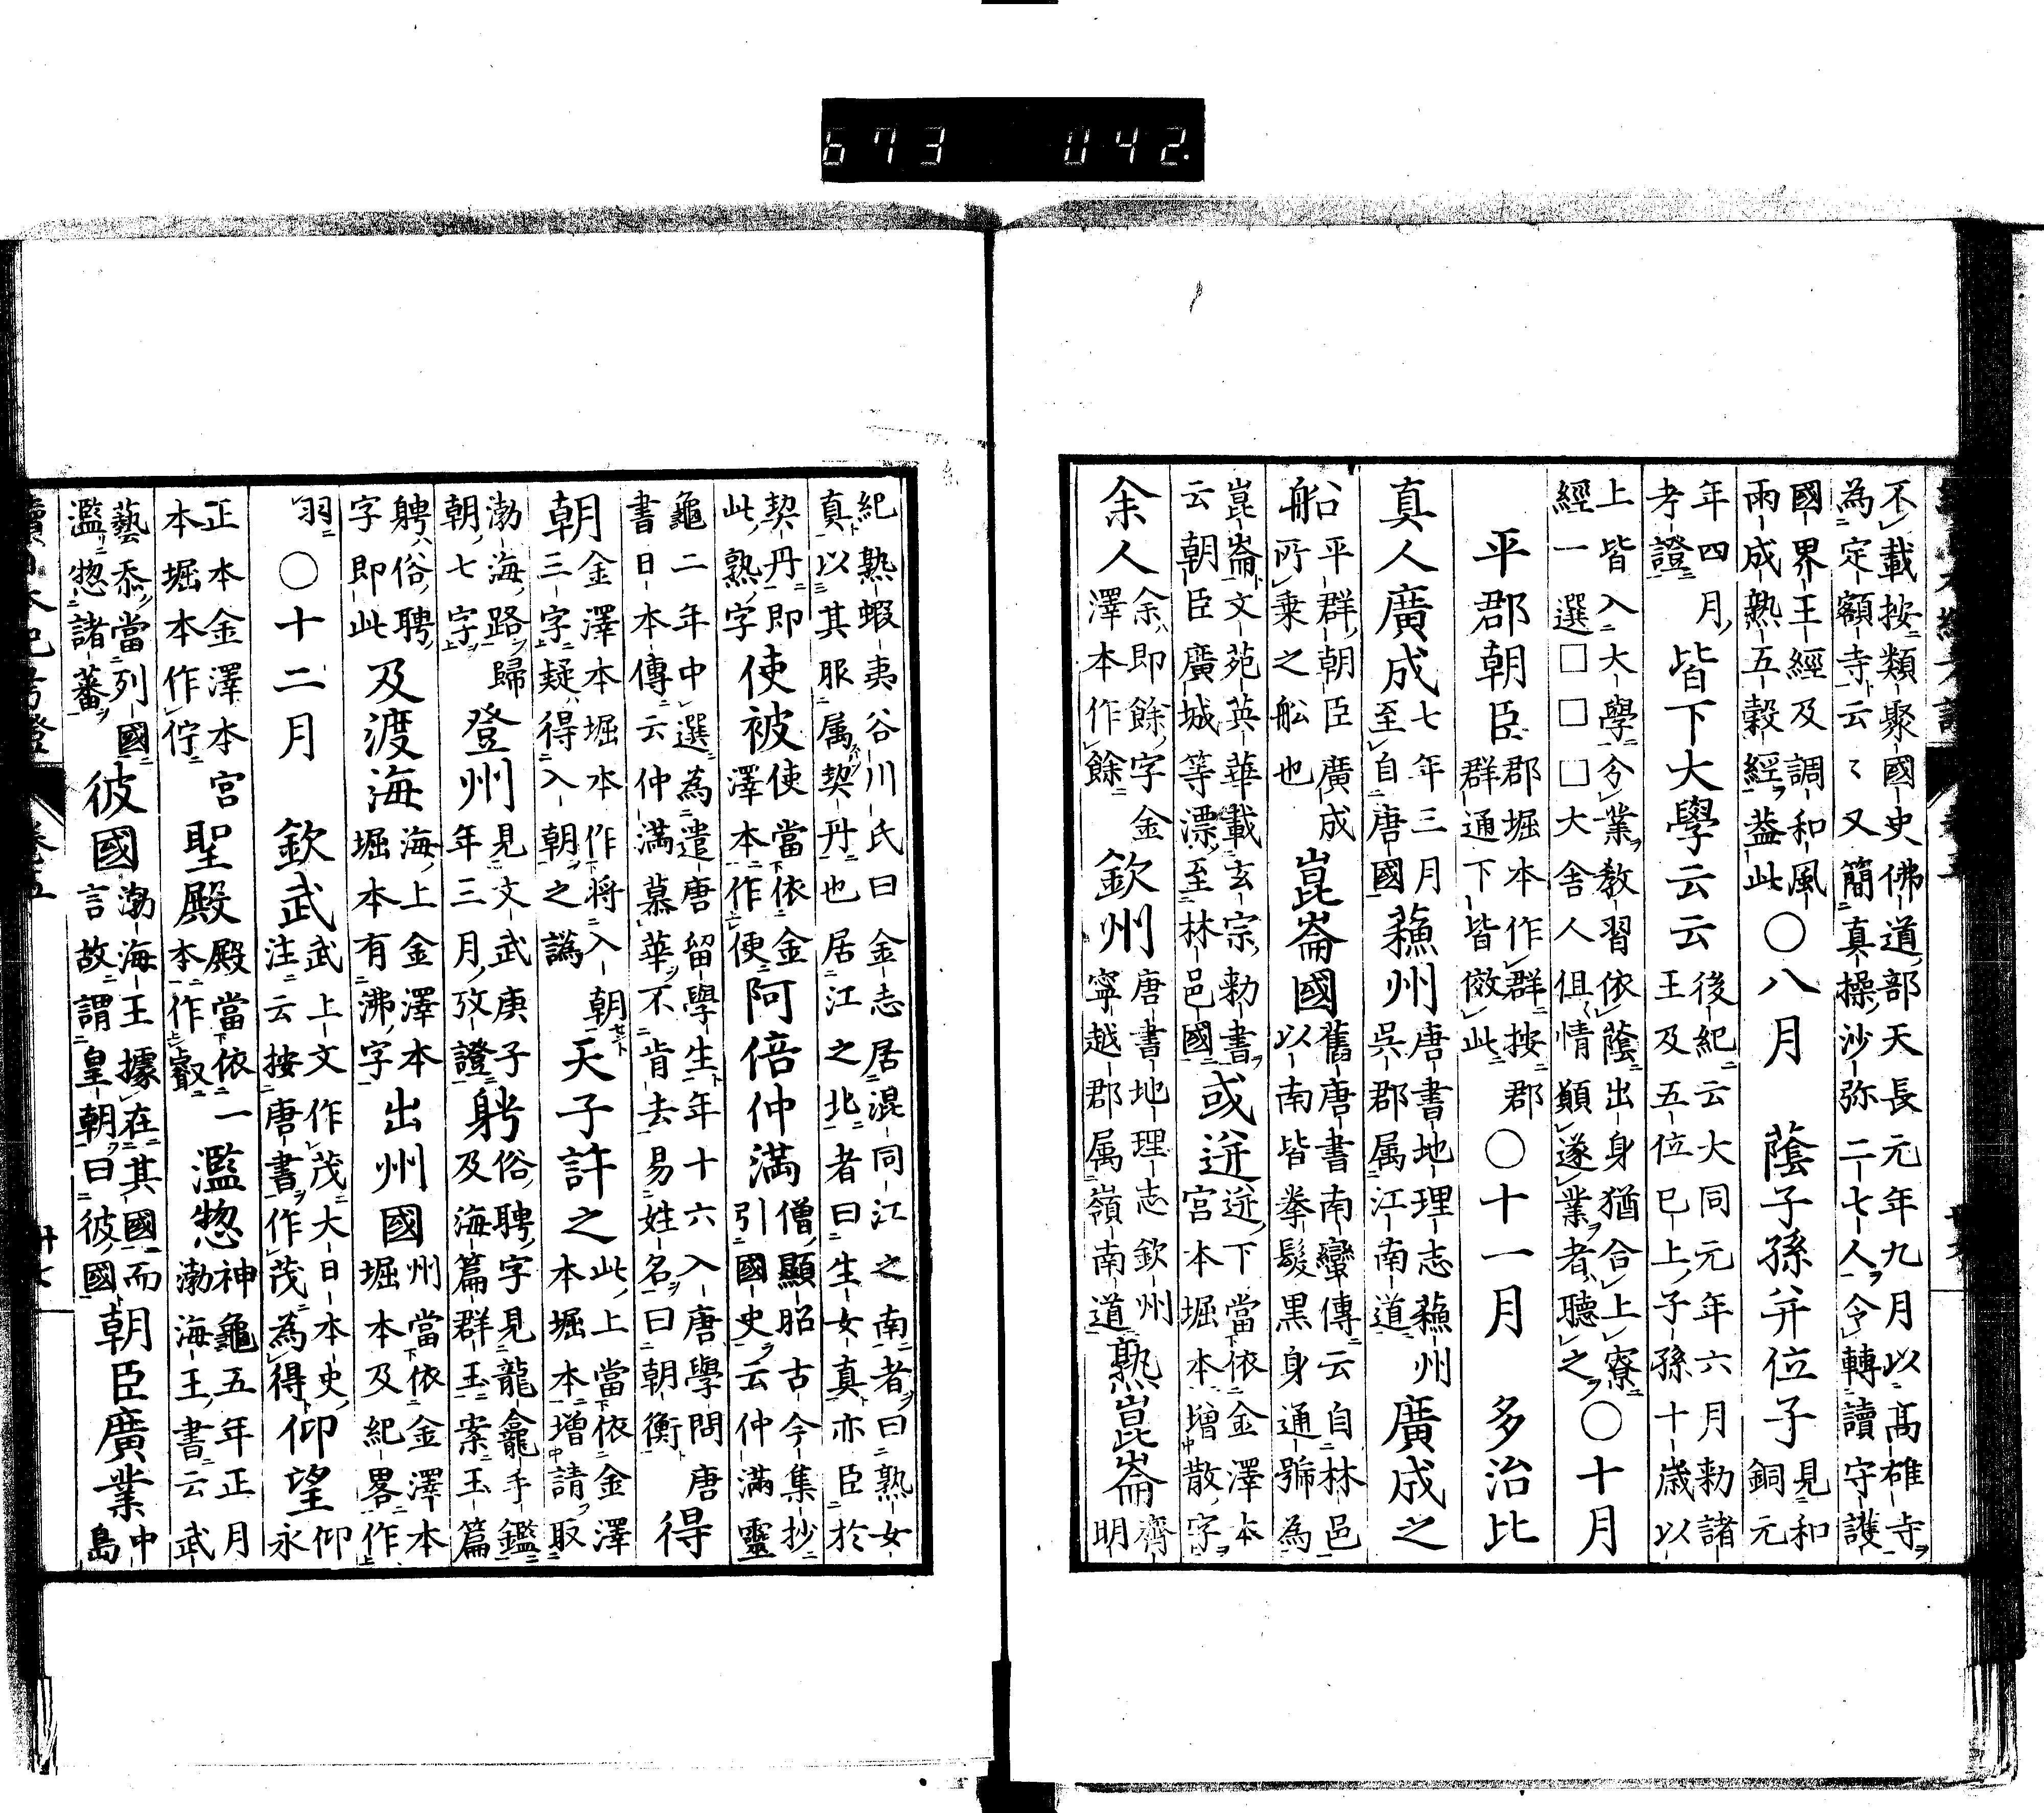 不載按類聚國史佛道部天長元年九月以高雄寺
為定額寺云〻又簡真操沙弥二七人令轉讀守護
國界王經及調和風雨成熟五穀經蓋此○八月 蔭子孫并位子見和銅元
年四月考證皆下大學云云後紀云大同元年六月勅諸王及五位已上子孫十歳以
上皆入大學分業教習依蔭出身猶合上寮經一選□□□大舍人但情願遂業者聽之○十月
平郡朝臣郡堀本作群按郡群通下皆傚此○十一月 多治比
真人廣成七年三月至自唐國蘓州唐書地理志蘓州吳郡属江南道廣成之
船平群朝臣廣成所乗之舩也崑崙國舊唐書南蠻傳云自林邑以南皆拳髮黒身通號為
崑崙文苑英華載玄宗勅書云朝臣廣城等漂至林邑國或迸迸下當依金澤本宮本堀本増散字
余人余即餘字金澤本作餘欽州唐書地理志欽州寧越郡属嶺南道熟崑崙齊明
紀熟蝦夷谷川氏曰金志居混同江之南者曰熟女
真以其服属契丹也居江之北者曰生女真亦臣於
契丹即此熟字使被使當依金澤本作便阿倍仲滿僧顯昭古今集抄引國史云仲滿靈
龜二年中選為遣唐留學生年十六入唐學問唐書日本傳云仲滿慕華不肯去易姓名曰朝衡得
朝金澤本堀本作将入朝三字疑得入朝之譌天子許之此上當依金澤本堀本増請取
渤海路歸朝七字登州見文武庚子年三月攷證躬俗聘字見龍龕手鑑及海篇群玉案玉篇
聘俗聘字即此及渡海海上金澤本堀本有沸字出州國州當依金澤本堀本及紀畧作
羽○十二月 欽武武上文作茂大日本史注云按唐書作茂為得仰望仰永
正本金澤本宮本堀本作佇聖殿殿當依一本作叡濫惣神龜五年正月渤海王書云武
藝忝當列國濫惣諸蕃彼國渤海王據在其國而言故謂皇朝曰彼國朝臣廣業中島
673 042.